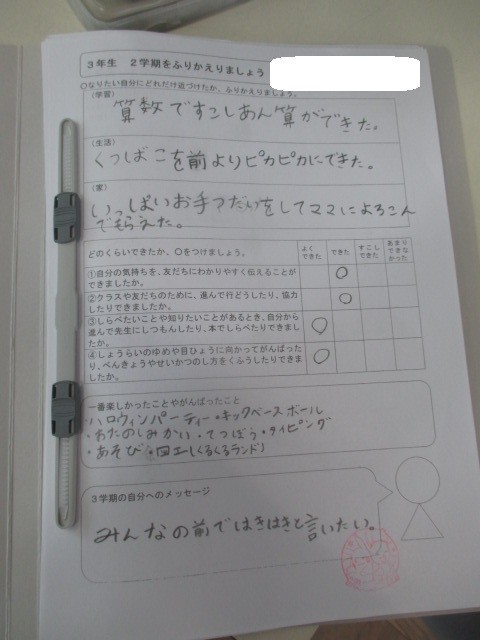 3年生 2学期をふりかえりましょう
○なりたい自分にどれだけ近づけたか、ふりかえりましょう。
(学習)
算数ですこしあん算ができた。
(生活)
くつばこを前よりピカピカにできた。
(家)
いっぱいお手つだいをしてママによろこん
でもらえた。
どのくらいできたか、○をつけましょう。
よくできた
できた
すこしできた
あまりできなかった
①自分の気持ちを、友だちにわかりやすく伝えることが
できましたか。
②クラスや友だちのために、進んで行どうしたり、協力
したりできましたか。
③しらべたいことや知りたいことがあるとき、自分から
進んで先生にしつもんしたり、本でしらべたりできまし
たか。
④しょうらいのゆめや目ひょうに向かってがんばった
り、べんきょうやせいかつのし方をくふうしたりできま
したか。
一番楽しかったことやがんばったこと
・ハロウィンパーティー・キックベースボール
・おたのしみかい・てつぼう・タイピング
・あそび・図工(くるくるランド)
3学期の自分へのメッセージ
みんなの前ではきはきと言いたい。